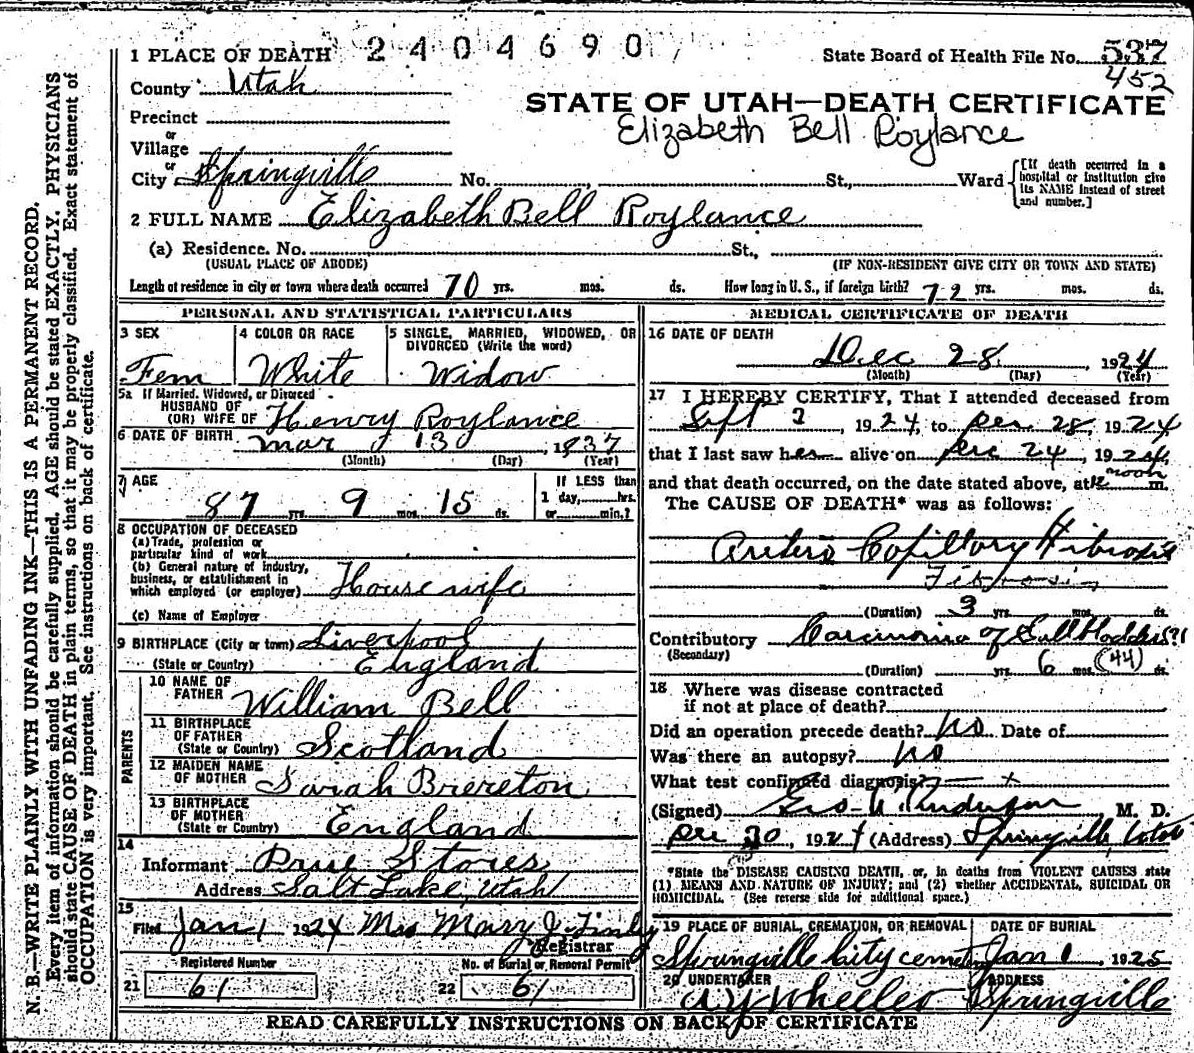 1 PLACE OF DEATH 2404690
State Board of Health File No. 537
452
County Utah
STATE OF UTAH—DEATH CERTIFICATE
Elizabeth Bell Roylance
Precinct
or
Village
or
City Springville No. St., Ward
[If death occurred in a
hospital or institution give
its NAME instead of street
and number.]
2 FULL NAME Elizabeth Bell Roylance
(a) Residence. No. St.,
(USUAL PLACE OF ABODE) (IF NON-RESIDENT GIVE CITY OR TOWN AND STATE)
Length of residence in city or town where death occurred 70 yrs. mos. ds. How long in U. S., if foreign birth? 72 yrs. mos. ds.
PERSONAL AND STATISTICAL PARTICULARS
3 SEX
Fem
4 COLOR OR RACE
White
5 SINGLE, MARRIED, WIDOWED, OR
DIVORCED (Write the word)
Widow
5a If Married, Widowed, or Divorced
HUSBAND OF
(OR) WIFE OF Henry Roylance
6 DATE OF BIRTH Mar 13, 1837
(Month) (Day) (Year)
7 AGE
87 yrs. 9 mos. 15 ds.
If LESS than
1 day, hrs.
or min.?
8 OCCUPATION OF DECEASED
(a) Trade, profession or
particular kind of work
(b) General nature of industry,
business, or establishment in
which employed (or employer) Housewife
(c) Name of Employer
9 BIRTHPLACE (City or town) Liverpool
(State or Country) England
PARENTS
10 NAME OF
FATHER William Bell
11 BIRTHPLACE
OF FATHER
(State or Country) Scotland
12 MAIDEN NAME
OF MOTHER Sarah Brereton
13 BIRTHPLACE
OF MOTHER
(State or Country) England
14
Informant Prue Stores
Address Salt Lake, Utah
15
Filed Jan 1 1924 Mrs Mary J Finly
Registrar
Registered Number No. of Burial or Removal Permit
21 61 22 61
MEDICAL CERTIFICATE OF DEATH
16 DATE OF DEATH
Dec 28, 1924
(Month) (Day) (Year)
17 I HEREBY CERTIFY, That I attended deceased from
Sept 2, 1924, to Dec. 28, 1924
that I last saw her alive on Dec 24, 1924,
and that death occurred, on the date stated above, at 12 noon m.
The CAUSE OF DEATH* was as follows:
Arterio Copillory Fibrosis
Fibrosis
(Duration) 3 yrs. mos. ds.
Contributory Carcinoma of Gall
(Secondary)
(Duration) yrs. 6 mos. (44) ds.
18 Where was disease contracted
if not at place of death?
Did an operation precede death? No Date of
Was there an autopsy? No
What test confirmed diagnosis?
(Signed) Geo. Anderson M. D.
Dec 30, 1924 (Address) Springville, Utah
*State the DISEASE CAUSING DEATH, or, in deaths from VIOLENT CAUSES state
(1) MEANS AND NATURE OF INJURY; and (2) whether ACCIDENTAL, SUICIDAL OR
HOMICIDAL. (See reverse side for additional space.)
19 PLACE OF BURIAL, CREMATION, OR REMOVAL DATE OF BURIAL
Springville City cemet Jan 1, 1925
20 UNDERTAKER ADDRESS
A Y Wheeler Springville
READ CAREFULLY INSTRUCTIONS ON BACK OF CERTIFICATE
N. B.—WRITE PLAINLY WITH UNFADING INK—THIS IS A PERMANENT RECORD.
Every item of information should be carefully supplied. AGE should be stated EXACTLY. PHYSICIANS
should state CAUSE OF DEATH in plain terms, so that it may be properly classified. Exact statement of
OCCUPATION is very important. See instructions on back of certificate.